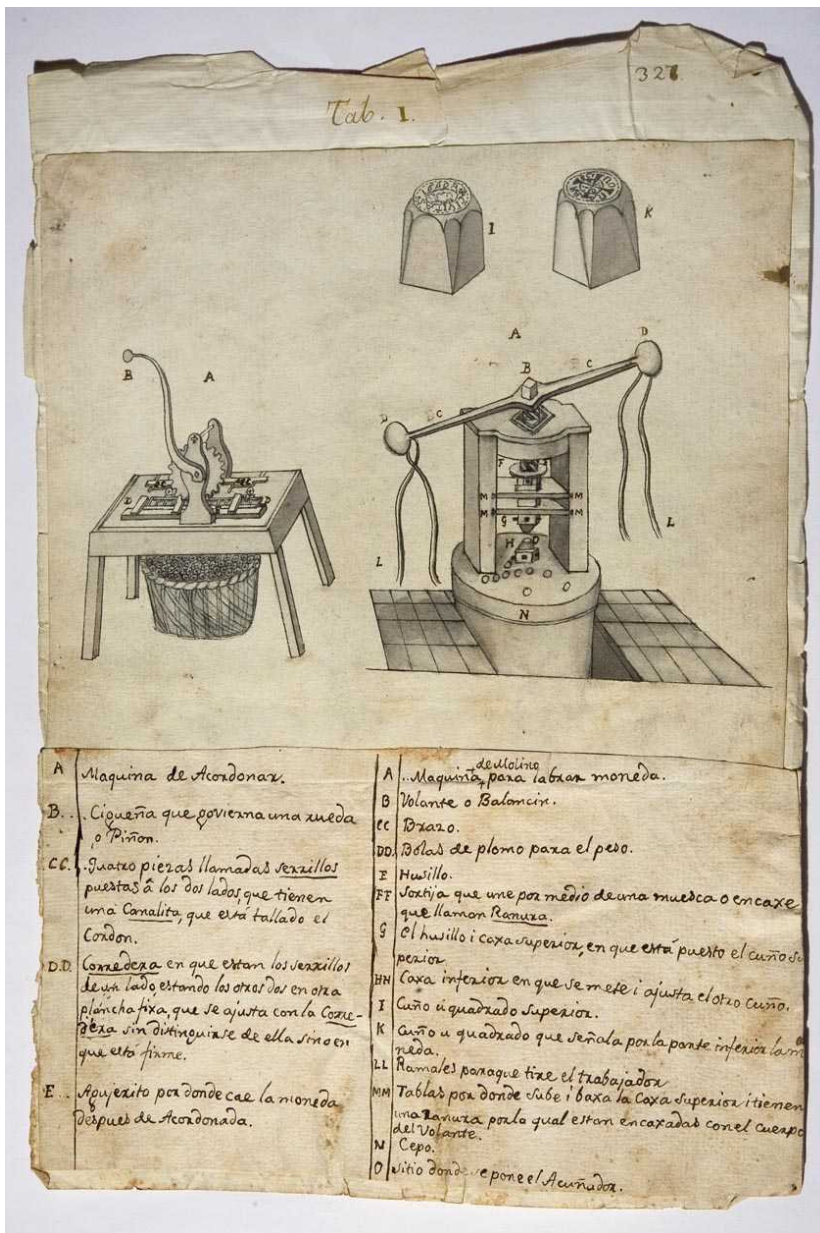 327
Tab. I.
I
K
B
A
D
A
B
C
D
C
D
F
M
M
M
M
G
H
O
L
L
N
A Maquina de Acordonar.
B... Cigueña que govierna una rueda
o Piñon.
CC. Quatro piezas llamadas serrillos
puestas â los dos lados, que tienen
una Canalita, que está tallado el
Cordon.
D.D. Corredera en que estan los serrillos
de un lado, estando los otros dos en otra
plancha fixa, que se ajusta con la Corre-
dera sin distinguirse de ella sino en
que está firme.
E... Agujerito por donde cae la moneda
despues de Acordonada.
A ...Maquina de Molino para labrar moneda.
B Volante o Balancin.
CC Brazo.
DD. Bolas de plomo para el peso.
E Husillo.
FF Sortija que une por medio de una muesca o encaxe
que llaman Ranura.
G El husillo i caxa superior, en que está puesto el cuño su
perior.
HH Caxa inferior en que se mete i ajusta el otro cuño.
I Cuño u quadrado superior.
K Cuño u quadrado que señala por la parte inferior la mo
neda.
LL Ramales para que tire el trabajador
MM Tablas por donde sube i baxa la Caxa superior i tienen
una ranura por la qual estan encaxadas con el cuerpo
del Volante.
N Cepo.
O sitio donde se pone el Acuñador.